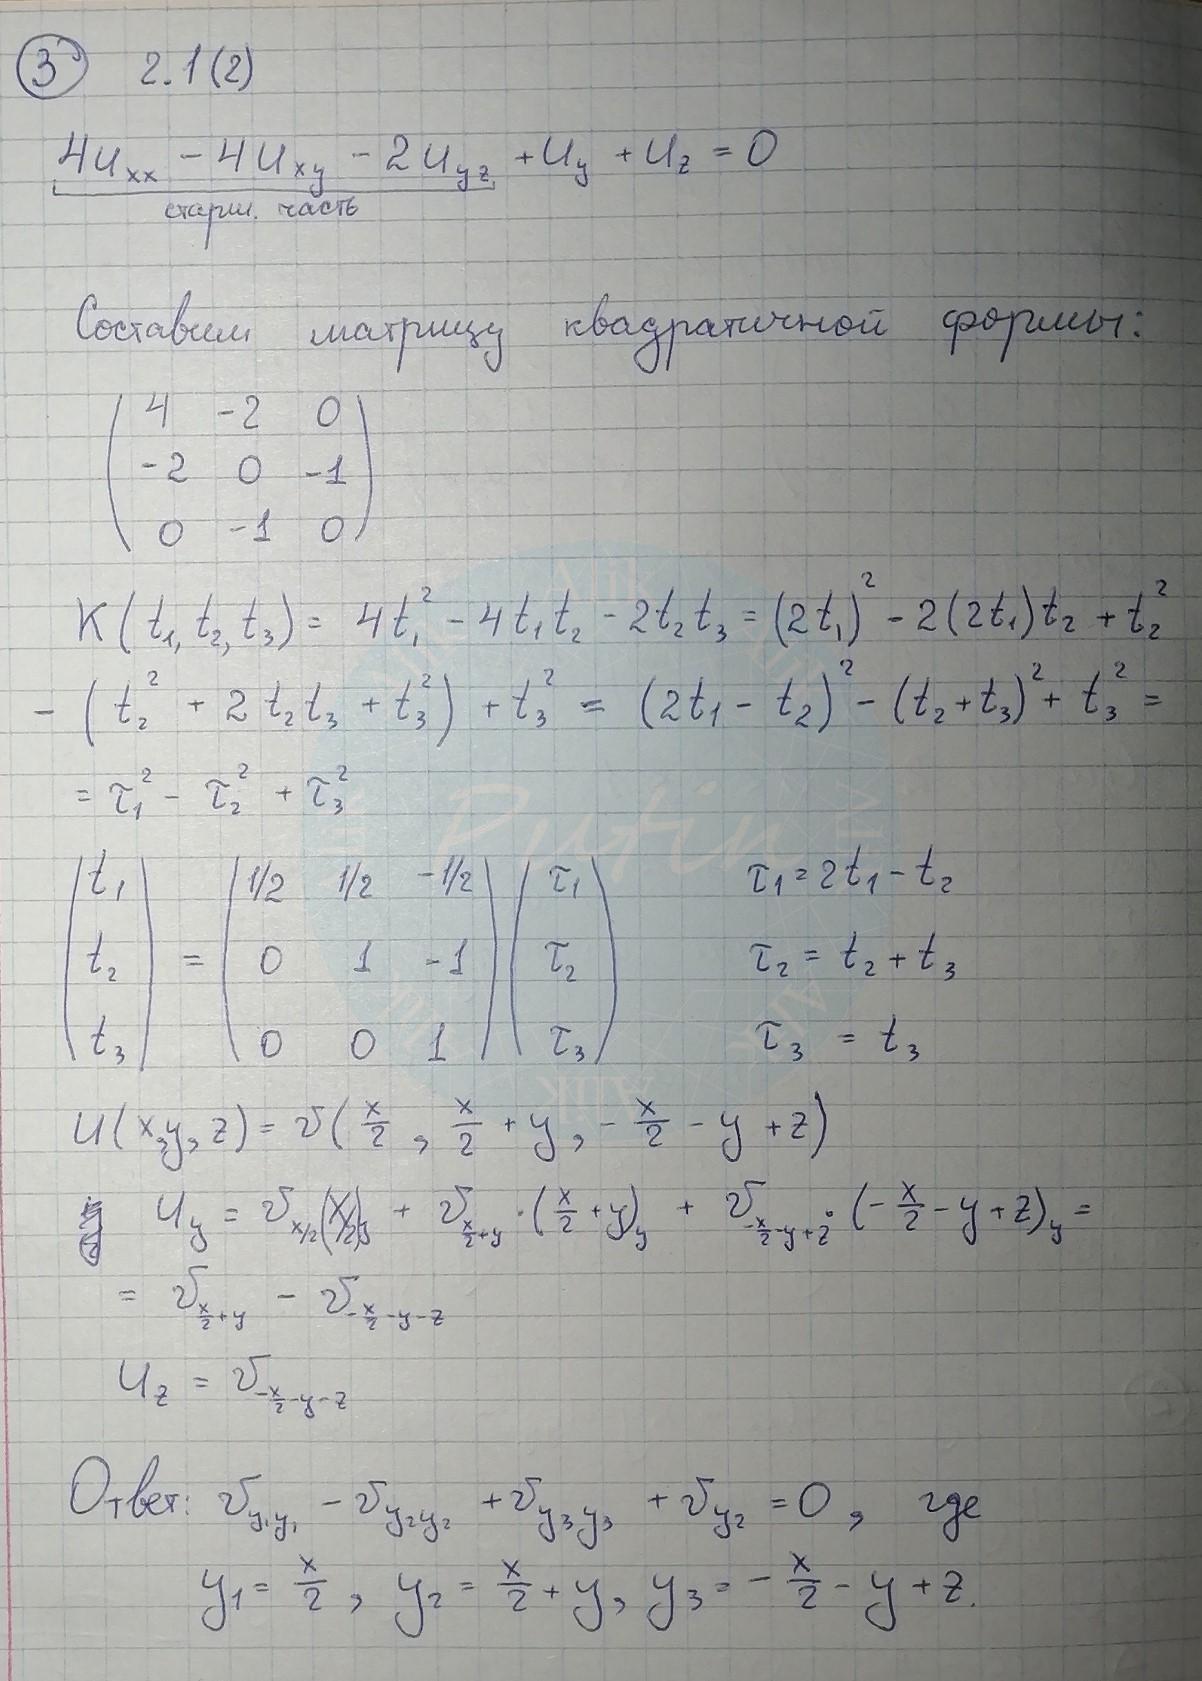 3 2.1(2)
4u_xx - 4u_xy - 2u_yz + u_y + u_z = 0
старш. часть
Составим матрицу квадратичной формы:
4 -2 0
-2 0 -1
0 -1 0
K(t₁, t₂, t₃) = 4t₁² - 4t₁t₂ - 2t₂t₃ = (2t₁)² - 2(2t₁)t₂ + t₂²
- (t₂² + 2t₂t₃ + t₃²) + t₃² = (2t₁ - t₂)² - (t₂ + t₃)² + t₃² =
= τ₁² - τ₂² + τ₃²
Putin
(t₁) = (1/2 1/2 -1/2) (τ₁) τ₁ = 2t₁ - t₂
(t₂) = (0 1 -1) (τ₂) τ₂ = t₂ + t₃
(t₃) = (0 0 1) (τ₃) τ₃ = t₃
Alik
u(x, y, z) = v(x/2, x/2 + y, -x/2 - y + z)
u_y = v_{x/2}(x/2)_y + v_{x/2+y} · (x/2 + y)_y + v_{-x/2-y+z} · (-x/2 - y + z)_y =
= v_{x/2+y} - v_{-x/2-y-z}
u_z = v_{-x/2-y-z}
Ответ: v_{y₁y₁} - v_{y₂y₂} + v_{y₃y₃} + v_{y₂} = 0, где
y₁ = x/2, y₂ = x/2 + y, y₃ = -x/2 - y + z.